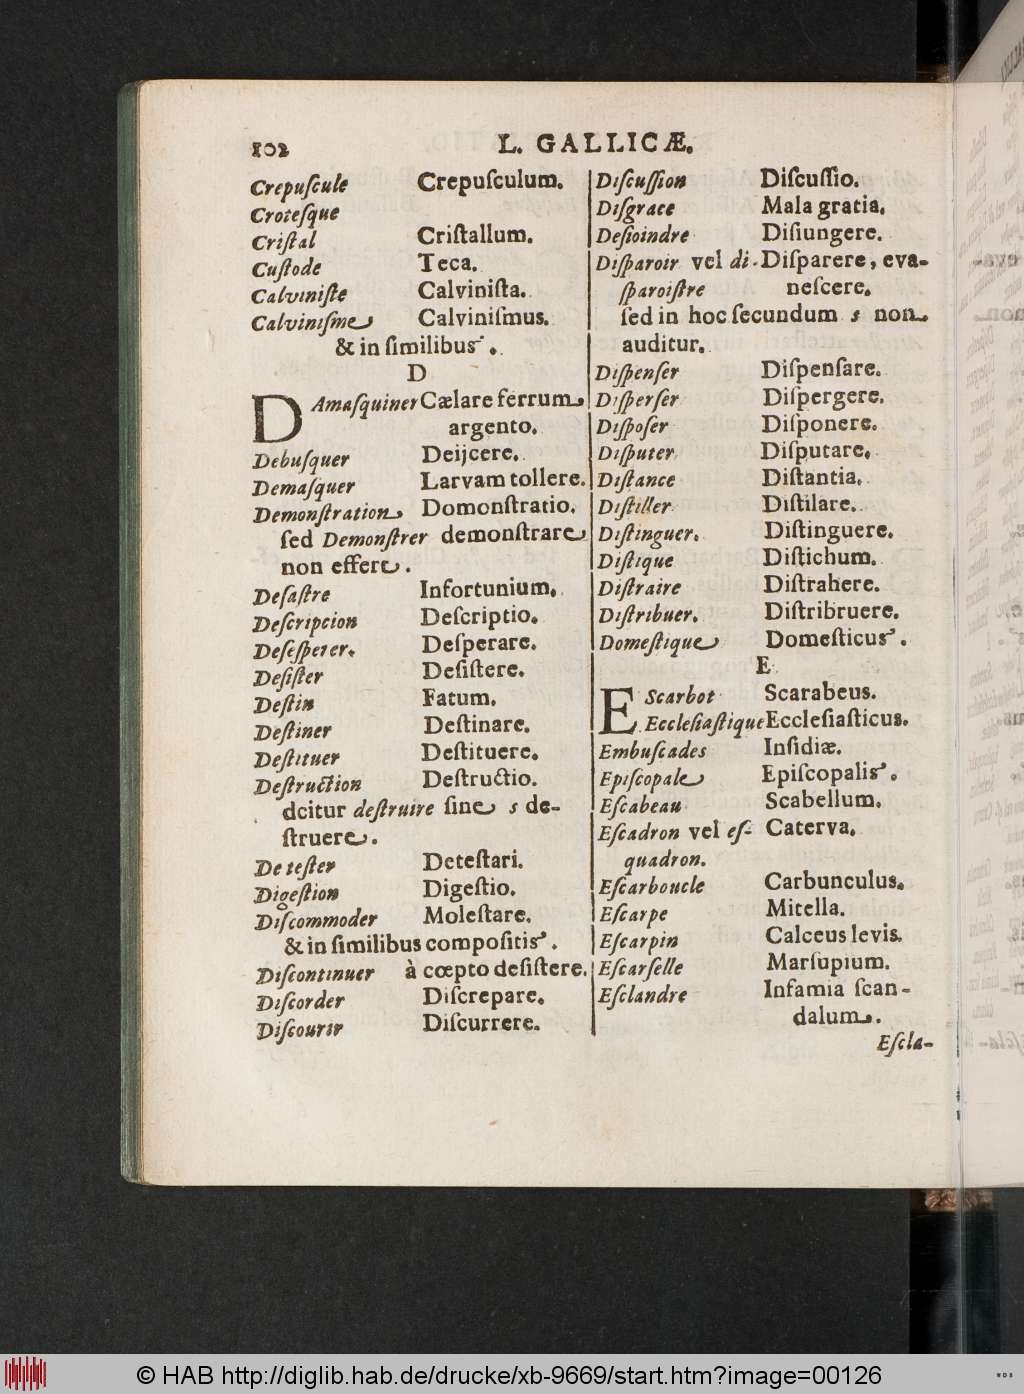 102 L. GALLICÆ.
Crepuſcule Crepuſculum.
Croteſque
Criſtal Criſtallum.
Cuſtode Teca.
Calviniſte Calviniſta.
Calviniſme Calviniſmus.
& in ſimilibus.
D
DAmaſquiner Cælare ferrum
argento.
Debuſquer Deijcere.
Demaſquer Larvam tollere.
Demonſtration Domonſtratio.
ſed Demonſtrer demonſtrare
non effere.
Deſaſtre Infortunium.
Deſcripcion Deſcriptio.
Deſeſperer. Deſperare.
Deſiſter Deſiſtere.
Deſtin Fatum.
Deſtiner Deſtinare.
Deſtituer Deſtituere.
Deſtruction Deſtructio.
dcitur deſtruire ſine s de-
ſtruere.
Deteſter Deteſtari.
Digeſtion Digeſtio.
Diſcommoder Moleſtare.
& in ſimilibus compoſitis.
Diſcontinuer à cœpto deſiſtere.
Diſcorder Diſcrepare.
Diſcourir Diſcurrere.
Diſcuſſion Diſcuſſio.
Diſgrace Mala gratia.
Deſioindre Diſiungere.
Diſparoir vel di- Diſparere, eva-
ſparoiſtre neſcere.
ſed in hoc ſecundum s non
auditur.
Diſpenſer Diſpenſare.
Diſperſer Diſpergere.
Diſpoſer Diſponere.
Diſputer Diſputare.
Diſtance Diſtantia.
Diſtiller Diſtilare.
Diſtinguer. Diſtinguere.
Diſtique Diſtichum.
Diſtraire Diſtrahere.
Diſtribuer. Diſtribruere.
Domeſtique Domeſticus.
E
EScarbot Scarabeus.
Eccleſiaſtique Eccleſiaſticus.
Embuſcades Inſidiæ.
Epiſcopale Epiſcopalis.
Eſcabeau Scabellum.
Eſcadron vel eſ- Caterva.
quadron.
Eſcarboucle Carbunculus.
Eſcarpe Mitella.
Eſcarpin Calceus levis.
Eſcarſelle Marſupium.
Eſclandre Infamia ſcan-
dalum.
Eſcla-
© HAB http://diglib.hab.de/drucke/xb-9669/start.htm?image=00126